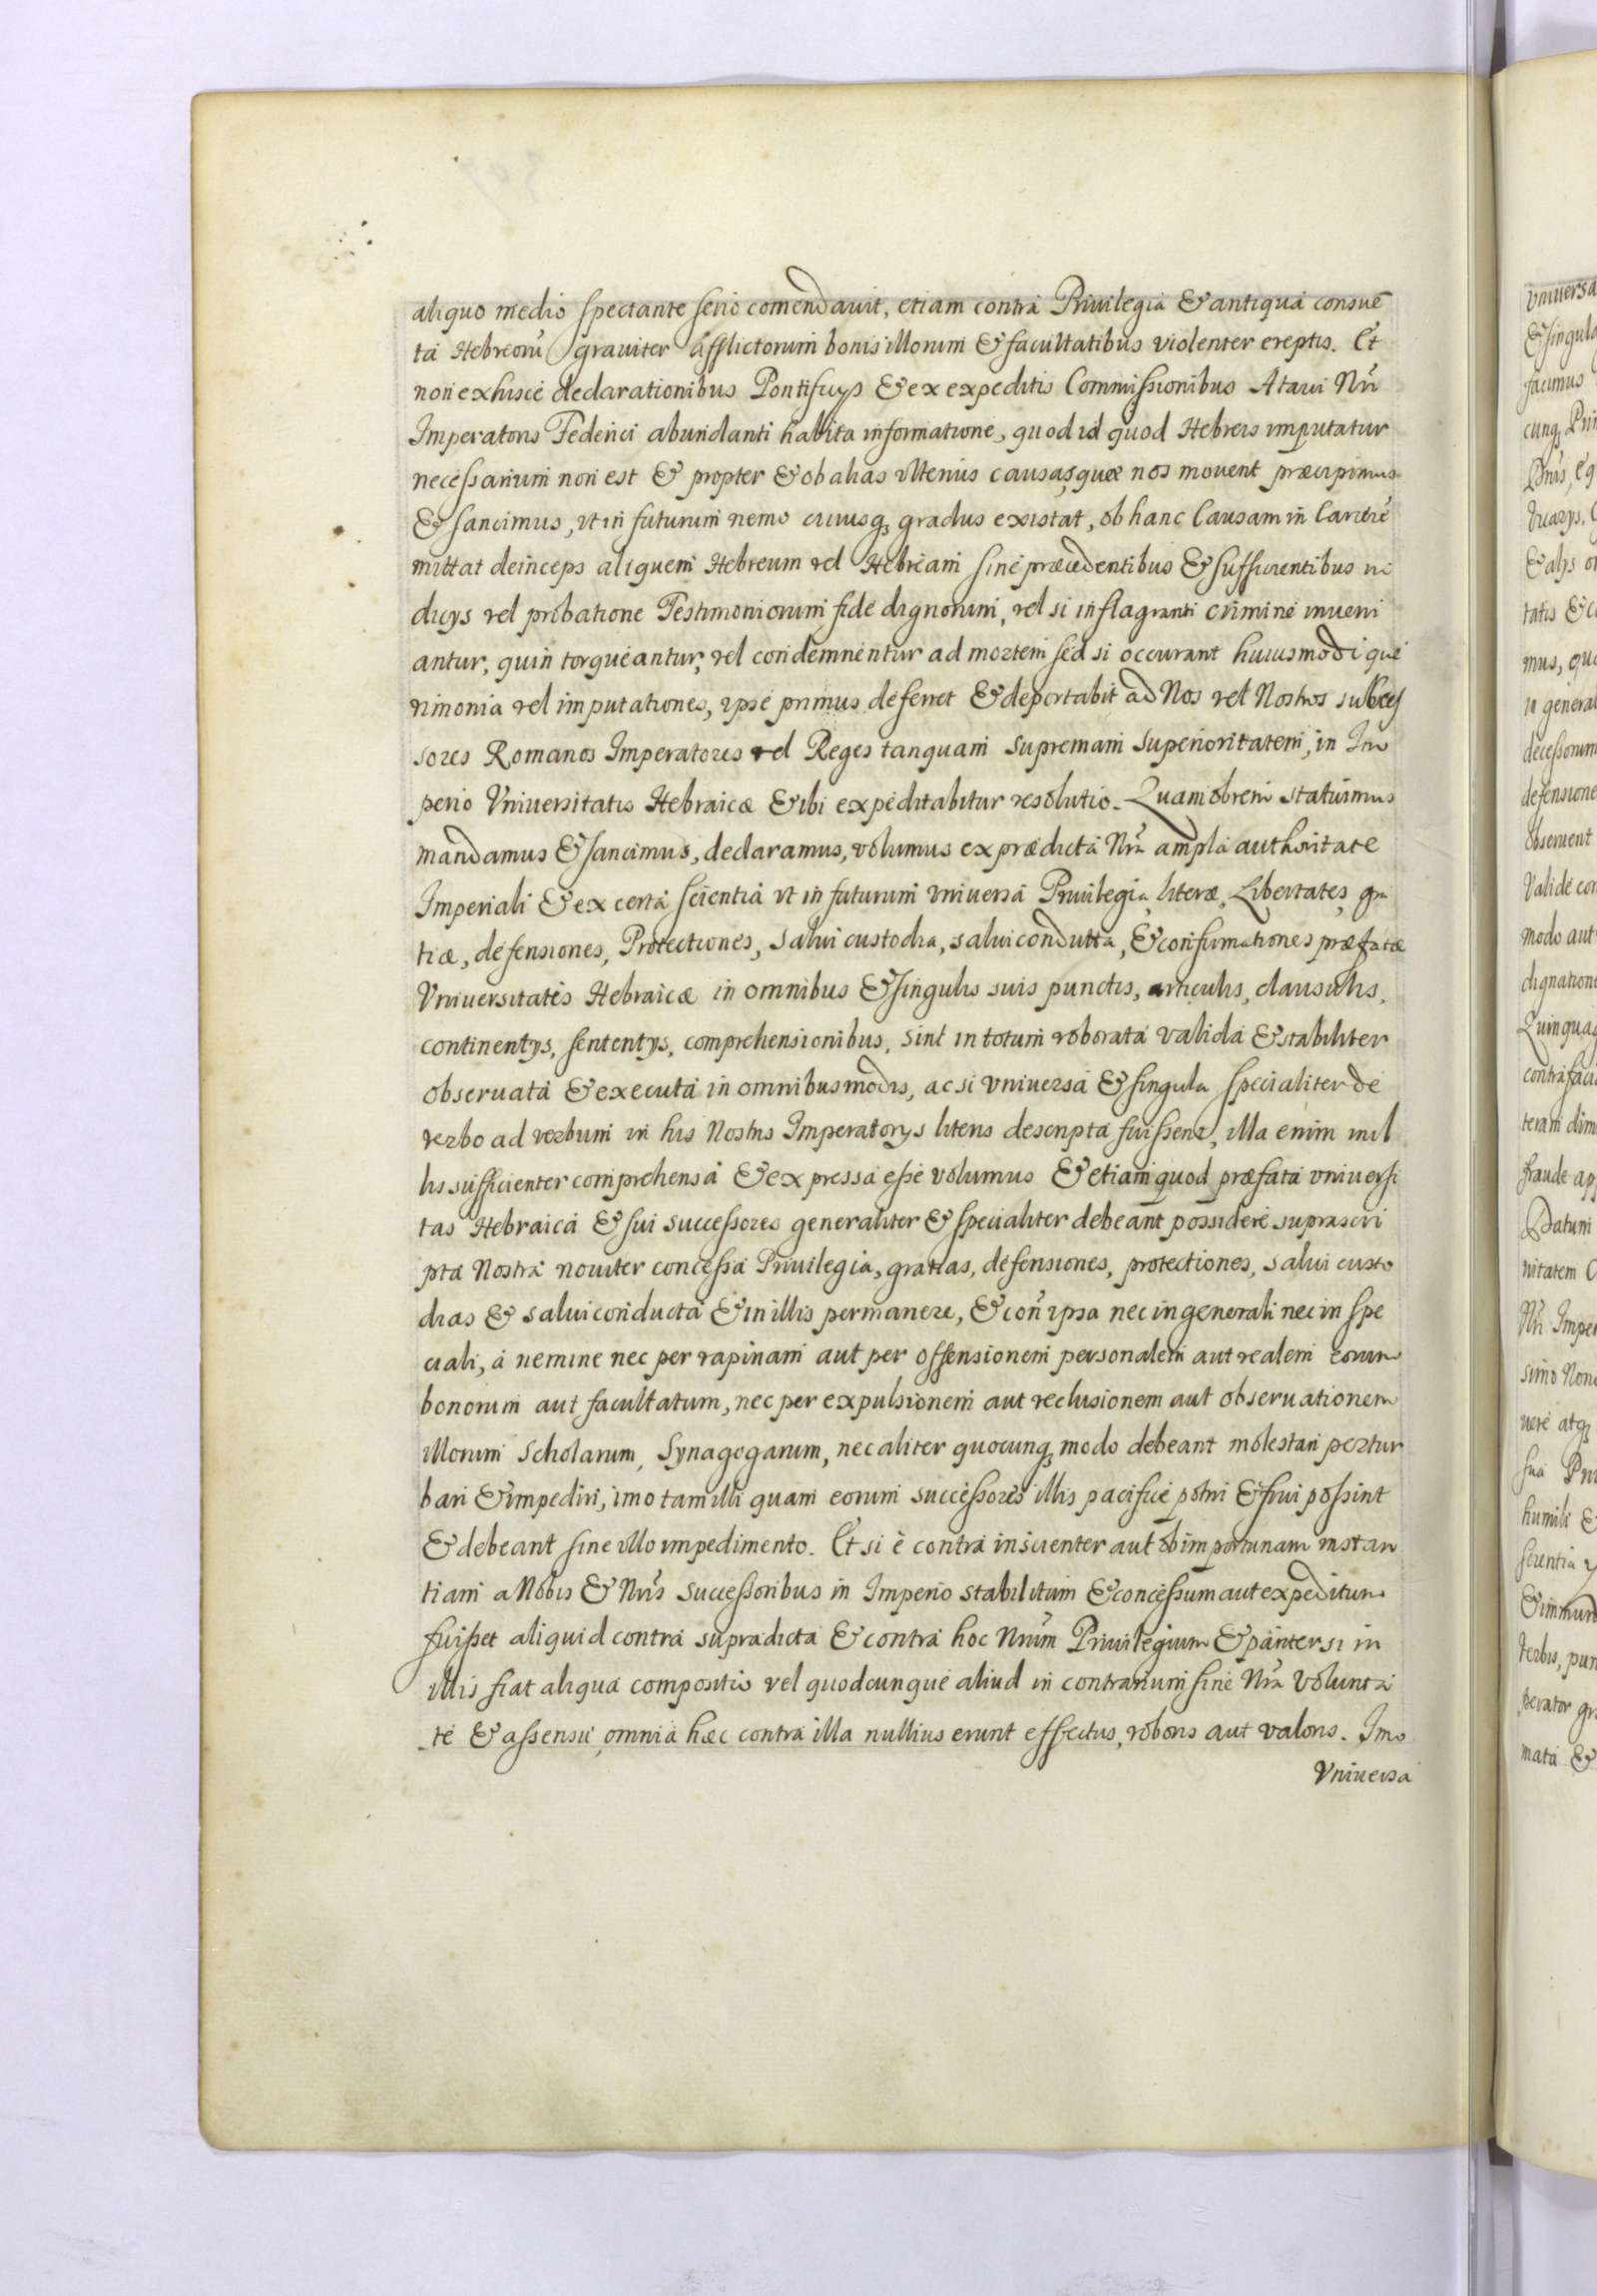 aliquo medio spectante serio comendauit, etiam contra Priuilegia & antiqua consue
ta Hebreorũ grauiter afflictorum bonis illorum & facultatibus violenter ereptis. Et
non ex hisce declarationibus Pontificys & ex expeditis Commissionibus Ataui Nr̃i
Imperatoris Federici abundanti habita informatione, quod id quod Hebreis imputatur
necessarium non est & propter & ob alias vlterius causas, quæ nos mouent præcipimus
& sancimus, vt in futurum nemo cuiusq; gradus existat, ob hanc Causam in Carcere
mittat deinceps aliquem Hebreum vel Hebream sine præcedentibus & sufficientibus in
dicys vel probatione Testimoniorum fide dignorum, vel si in flagranti crimine inueni
antur, quin torqueantur, vel condemnentur ad mortem sed si occurant huiusmodi que
rimonia vel imputationes, ipse primus deferret & deportabit ad Nos vel Nostros succes
sores Romanos Imperatores vel Reges tanquam supremam superioritatem, in Im
perio Vniuersitatis Hebraicæ & ibi expeditabitur resolutio. Quamobrem statuimus
mandamus & sancimus, declaramus, volumus ex prædicta Nr̃a ampla authoritate
Imperiali & ex certa scientia vt in futurum vniuersa Priuilegia, literæ, Libertates, gra
tiæ, defensiones, Protectiones, salui custodia, saluiconducta, & confirmationes præfatæ
Vniuersitatis Hebraicæ in omnibus & singulis suis punctis, articulis, clausulis,
continentys, sententys, comprehensionibus, sint in totum roborata valida & stabiliter
obseruata & executa in omnibus modis, ac si vniuersa & singula specialiter de
verbo ad verbum in his Nostris Imperatorys literis descripta fuissent, illa enim in il
lis sufficienter comprehensa & expressa esse volumus & etiam quod præfata vniuersi
tas Hebraica & sui successores generaliter & specialiter debeant possidere suprascri
pta Nostra nouiter concessa Priuilegia, gratias, defensiones, protectiones, salui custo
dias & saluiconducta & in illis permanere, & con̄ ipsa nec in generali nec in spe
ciali, a nemine nec per rapinam aut per offensionem personalem aut realem eorum
bonorum aut facultatum, nec per expulsionem aut reclusionem aut obseruationem
illorum Scholarum, Synagogarum, nec aliter quocunq; modo debeant molestari pertur
bari & impediri, imo tam illi quam eorum successores illis pacifice potiri & frui possint
& debeant sine vllo impedimento. Et si è contra inscienter aut ob importunam instan
tiam a Nobis & Nr̃is successoribus in Imperio stabilitum & concessum aut expeditum
fuisset aliquid contra supradicta & contra hoc Nr̃um Priuilegium & pariter si in
illis fiat aliqua compositio vel quodcunque aliud in contrarium sine Nr̃a Volunta
te & assensu, omnia hæc contra illa nullius erunt effectus, roboris aut valoris. Imo
Vniuersa